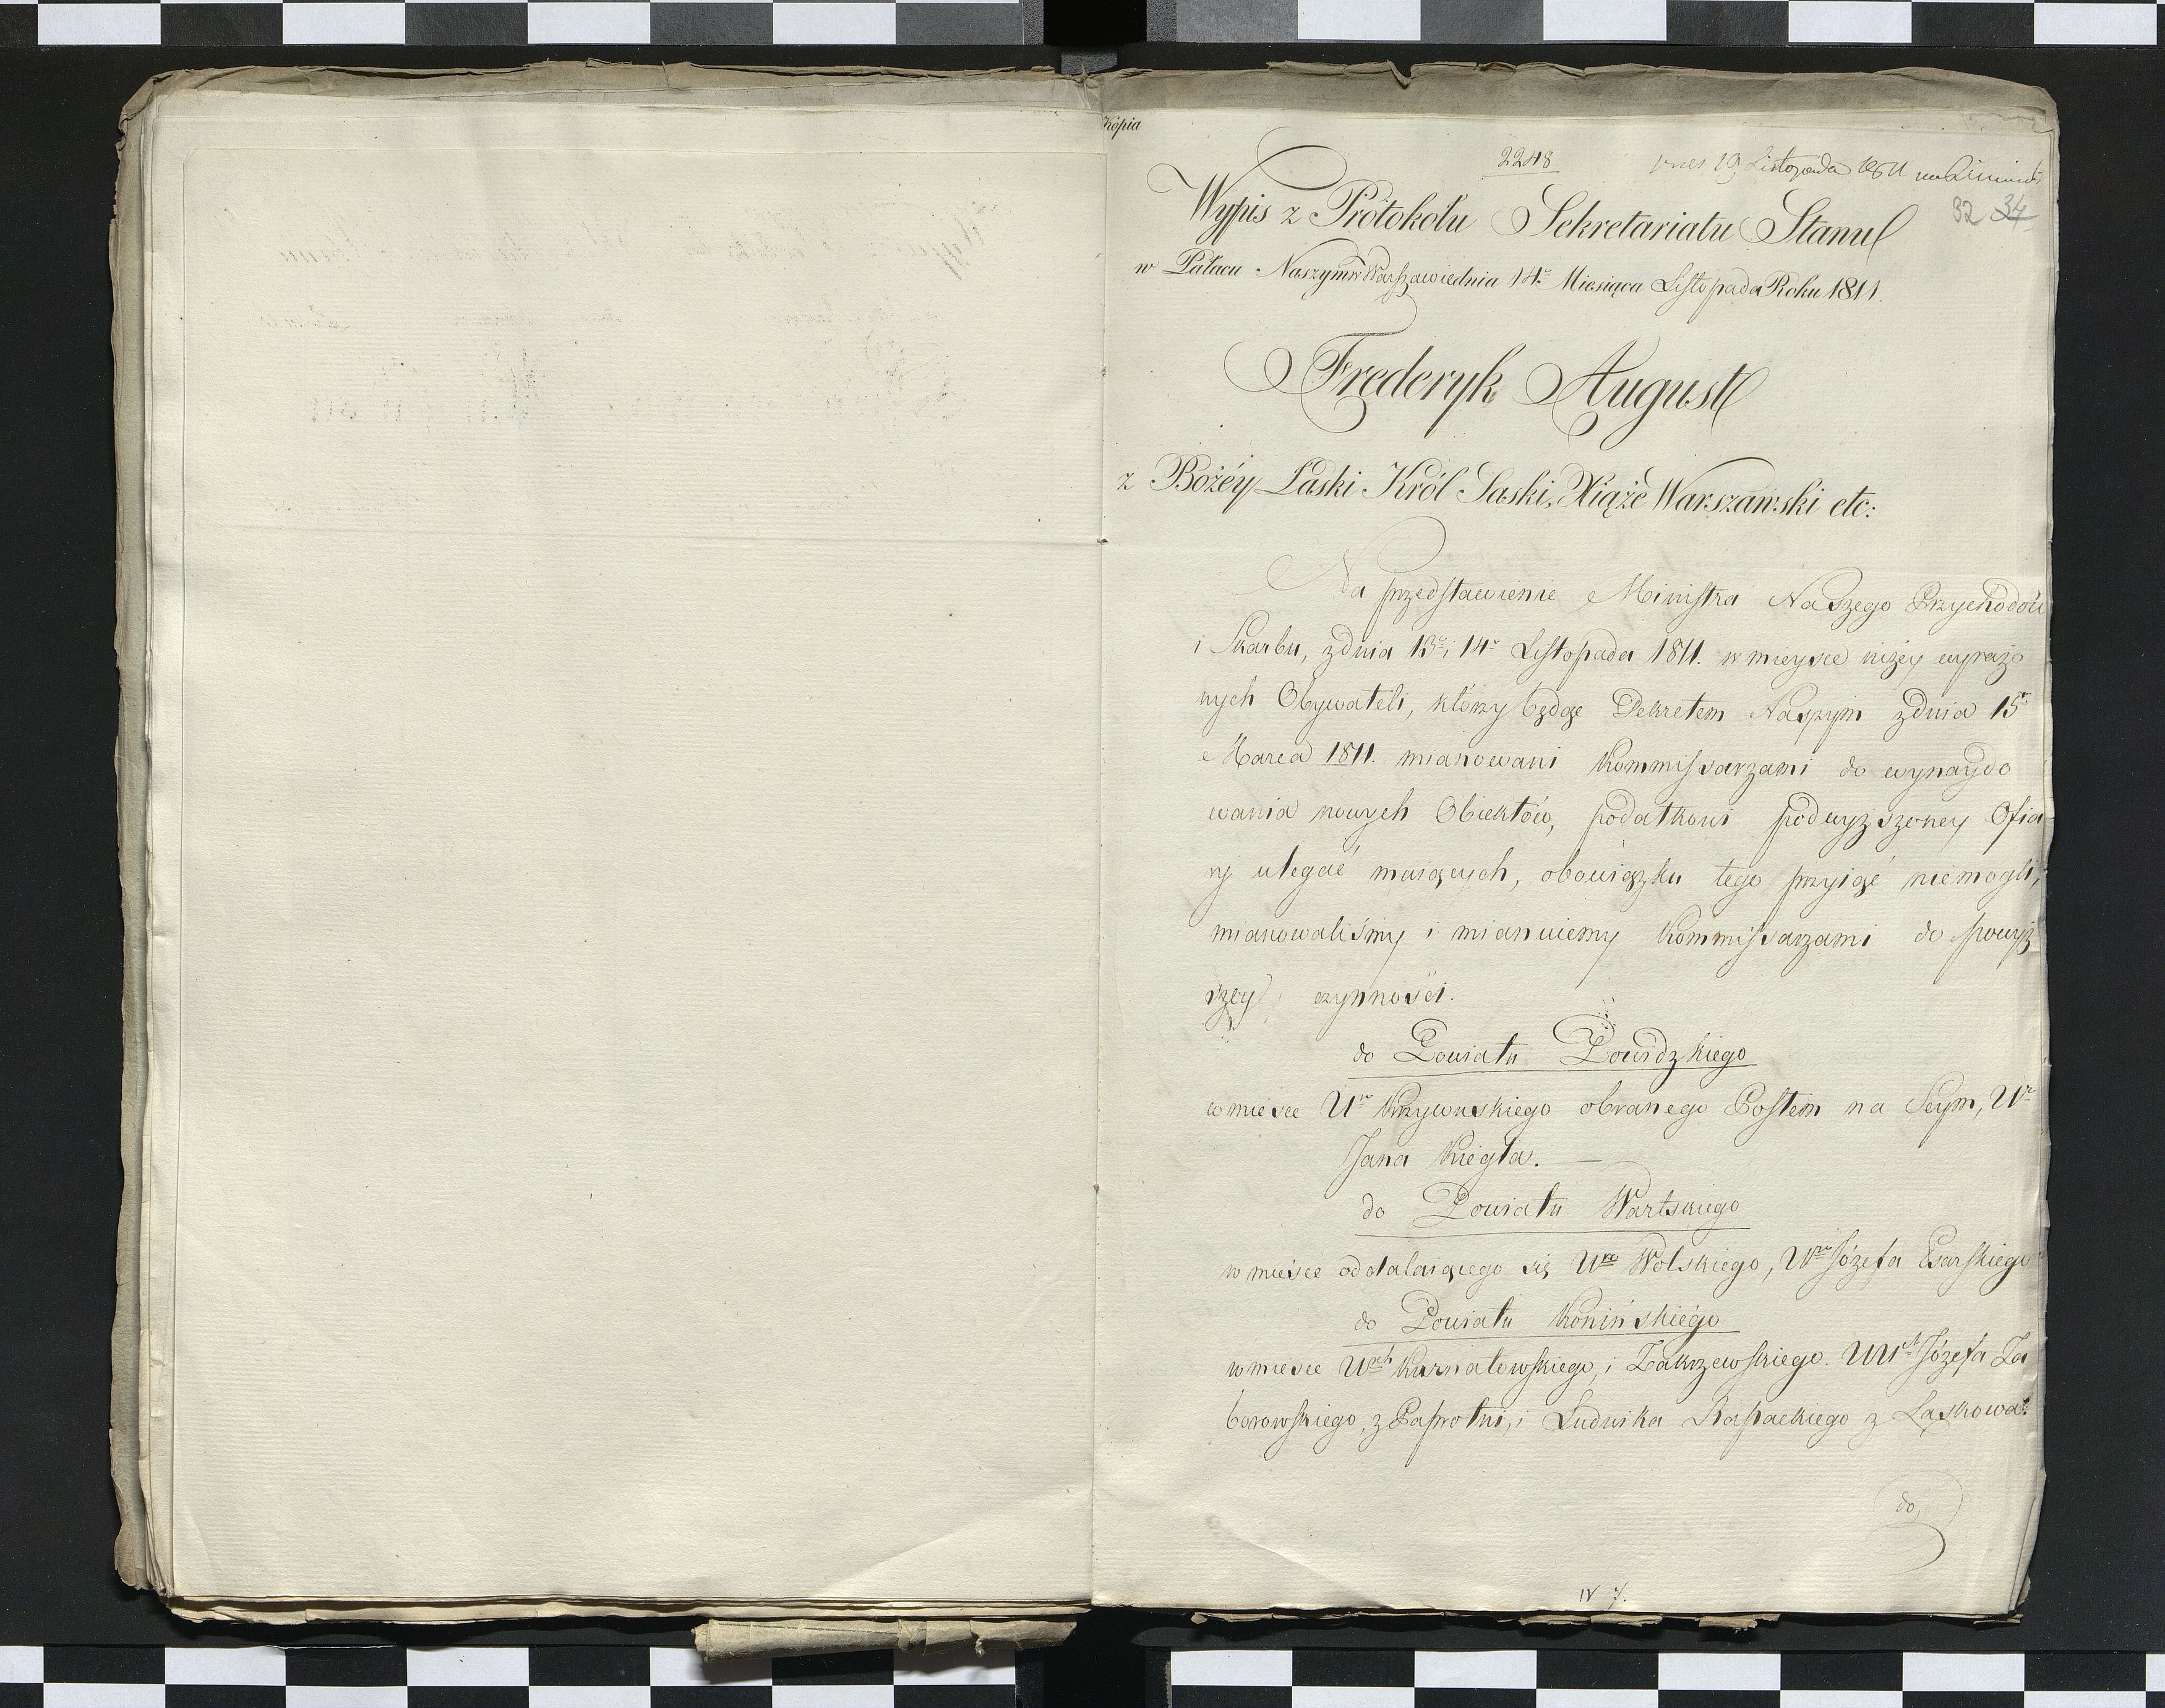 Kopia
2248
pres 19 Listopada 1811
32 34
Wypis z Protokołu Sekretariatu Stanu
w Pałacu Naszym w Warszawie dnia 14º Miesiąca Listopada Roku 1811.
Frederyk August
z Bożéy Łaski Król Saski, Xiąże Warszawski etc:
Na przedstawienie Ministra Naszego Przychodów
i Skarbu, z dnia 13º i 14º Listopada 1811. w mieysce niżey wyrażo
nych Obywateli, którzy będąc Dekretem Naszym z dnia 15º
Marca 1811. mianowani Kommissarzami do wynaydo
wania nowych Obiektów, podatkowi podwyższoney Ofia
ry ulegać maiących, obowiązku tego przyiąć niemogli,
mianowaliśmy i mianuiemy Kommissarzami do powyż
szey czynności.
do Powiatu Powidzkiego
w mieśce Uº Krzywuskiego obranego Posłem na Seym, Uº
Jana Kiegla.
do Powiatu Wartskiego
w mieśce oddalaiącego się Ugo Wolskiego, Ugo Józefa Psarskiego
do Powiatu Konińskiego
w mieśce Uych Kurnatowskiego, i Zakrzewskiego. UUch Józefa Za
borowskiego, z Paprotni, i Ludwika Rapackiego z Laskowa.
do,
IV 7.